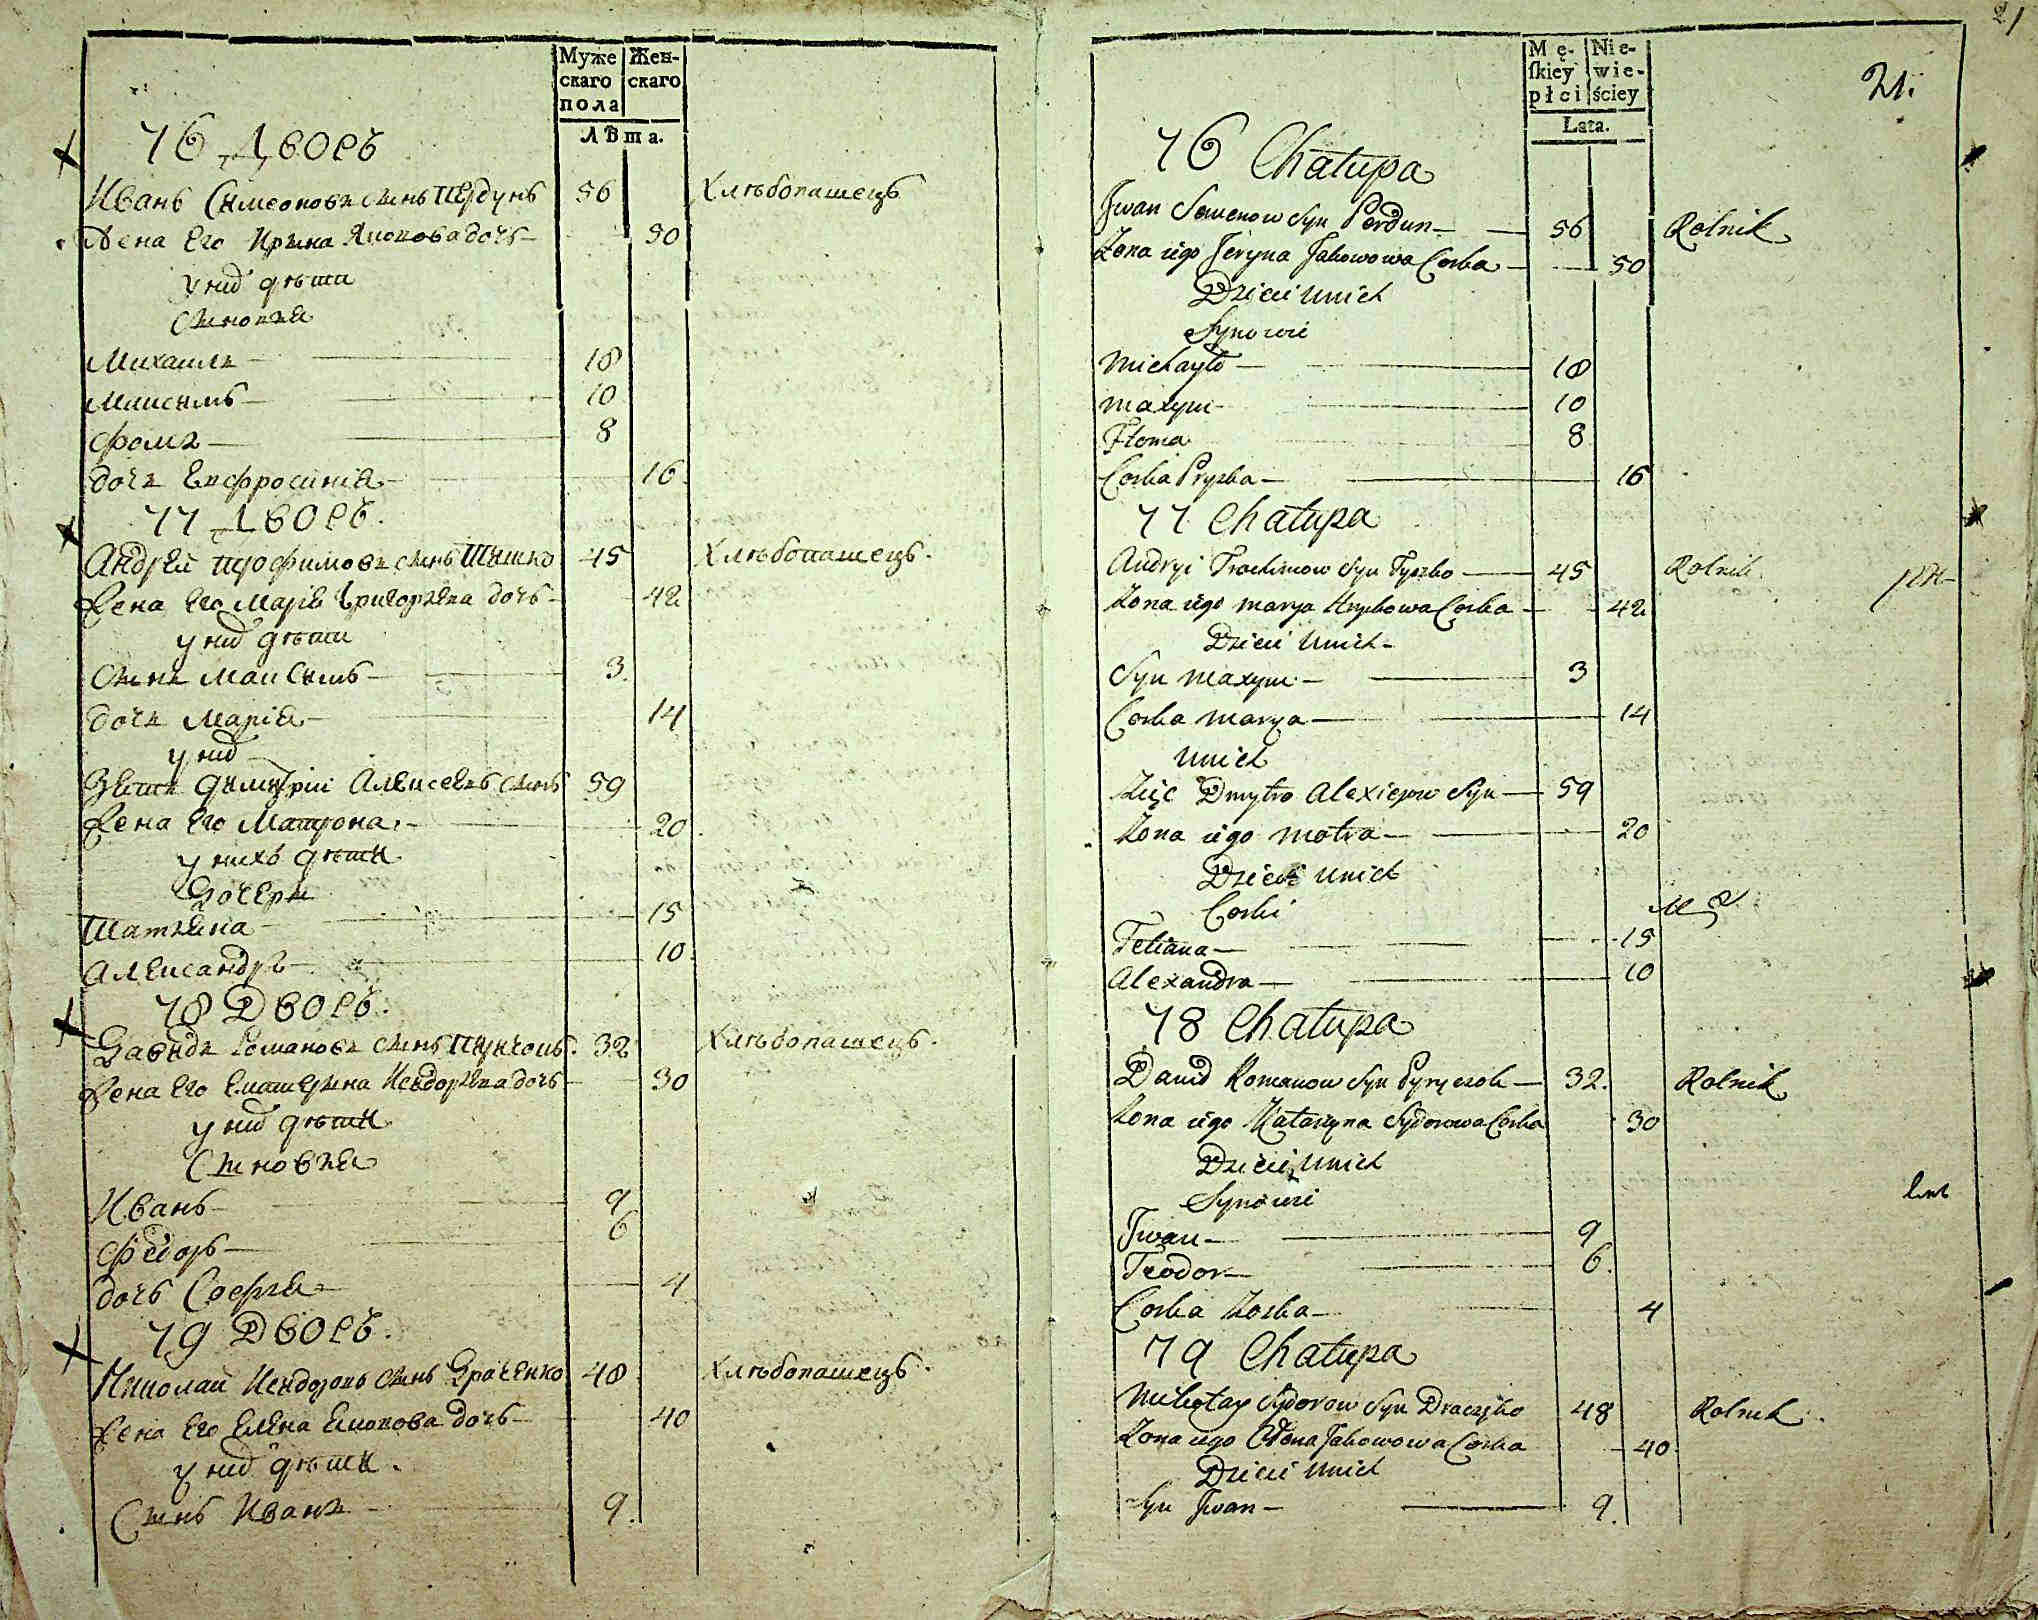 Муже Жен-
скаго скаго
пола
Лѣта.
76 Дворъ
Иванъ Симеоновъ сынъ Пердунъ 56 Хлѣбопашецъ
Жена Его Ирина Якопова дочь 50
у них дѣти
Сыновья
Михаилъ 18
Максимъ 10
Фома 8
дочь Евфросинія 16
77 Дворъ.
Андрей Трофимовъ сынъ Тишко 45 Хлѣбопашецъ.
Жена Его Марія Григорьева дочь 42
у них дѣти
Сынъ Максимъ 3
дочь Марія 14
у них
Зять Димитрій Алексеевъ сынъ 59
Жена Его Матрона 20
у нихъ дѣти
Дочери
Татьяна 15
Александра 10
78 Дворъ.
Давидъ Романовъ сынъ 32 Хлѣбопашецъ.
Жена Его Екатерина Исидорьева дочь 30
у них дѣти
Сыновья
Иванъ 9
Федоръ 6
дочь Софія 4
79 Дворъ.
Николай Исидоровъ сынъ Драченко 48 Хлѣбопашецъ.
Жена Его Елена Якопова дочь 40
у них дѣти.
Сынъ Иванъ 9.
21
Mę- Nie-
skiey wie-
płci ściey
Lata.
21.
76 Chałupa
Jwan Semenow Syn Perdun 56 Rolnik
Zona iego Jeryna Jakowowa Corka 50
Dzieci unich
Synowie
Michayło 18
Maxym 10
Choma 8
Corka Pryska 16
77 Chałupa
Andryi Trochimow Syn Tyszko 45 Rolnik
Zona iego Marya Hryckowa Corka 42
Dzieci Unich
Syn Maxym 3
Corka Marya 14
Unich
Zięc Dmytro Alexiejow Syn 59
Zona iego Motra 20
Dzieci Unich
Corki
Tetiana 15
Alexandra 10
78 Chałupa
Dawid Romanow Syn 32. Rolnik
Zona iego Katarzyna Sydorowa Corka 30
Dzieci Unich
Synowie
Jwan 9
Teodor 6.
Corka Zoska 4
79 Chałupa
Mikołay Sydorow Syn Draczęko 48 Rolnik
Zona iego Ołena Jakowowa Corka 40
Dzieci Unich
Syn Jwan 9.